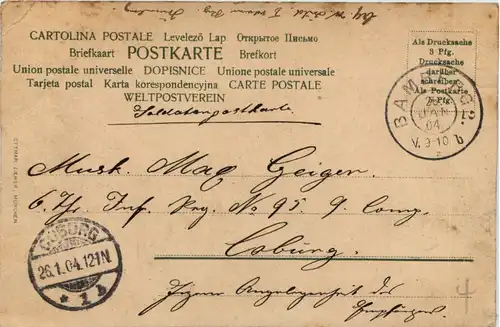 CARTOLINA POSTALE Levelező Lap Открытое Письмо
Briefkaart POSTKARTE Brefkort
Union postale universelle DOPISNICE Unione postale universale
Tarjeta postal Karta korespondencyjna CARTE POSTALE
WELTPOSTVEREIN
Soldatenpostkarte
Als Drucksache
3 Pfg.
Drucksache
darüber
schreiben
Als Postkarte
5 Pfg.
BAMBERG 2.
JAN
04
V. 9-10 b
Musk. Max Geiger
6. Thr. Inf. Reg. No 95. 9. Comp.
Coburg.
COBURG
26.1.04.12-1N.
* 1 b
Eigene Angelegenheit des
Empfängers.
OTTMAR ZIEHER, MÜNCHEN
4